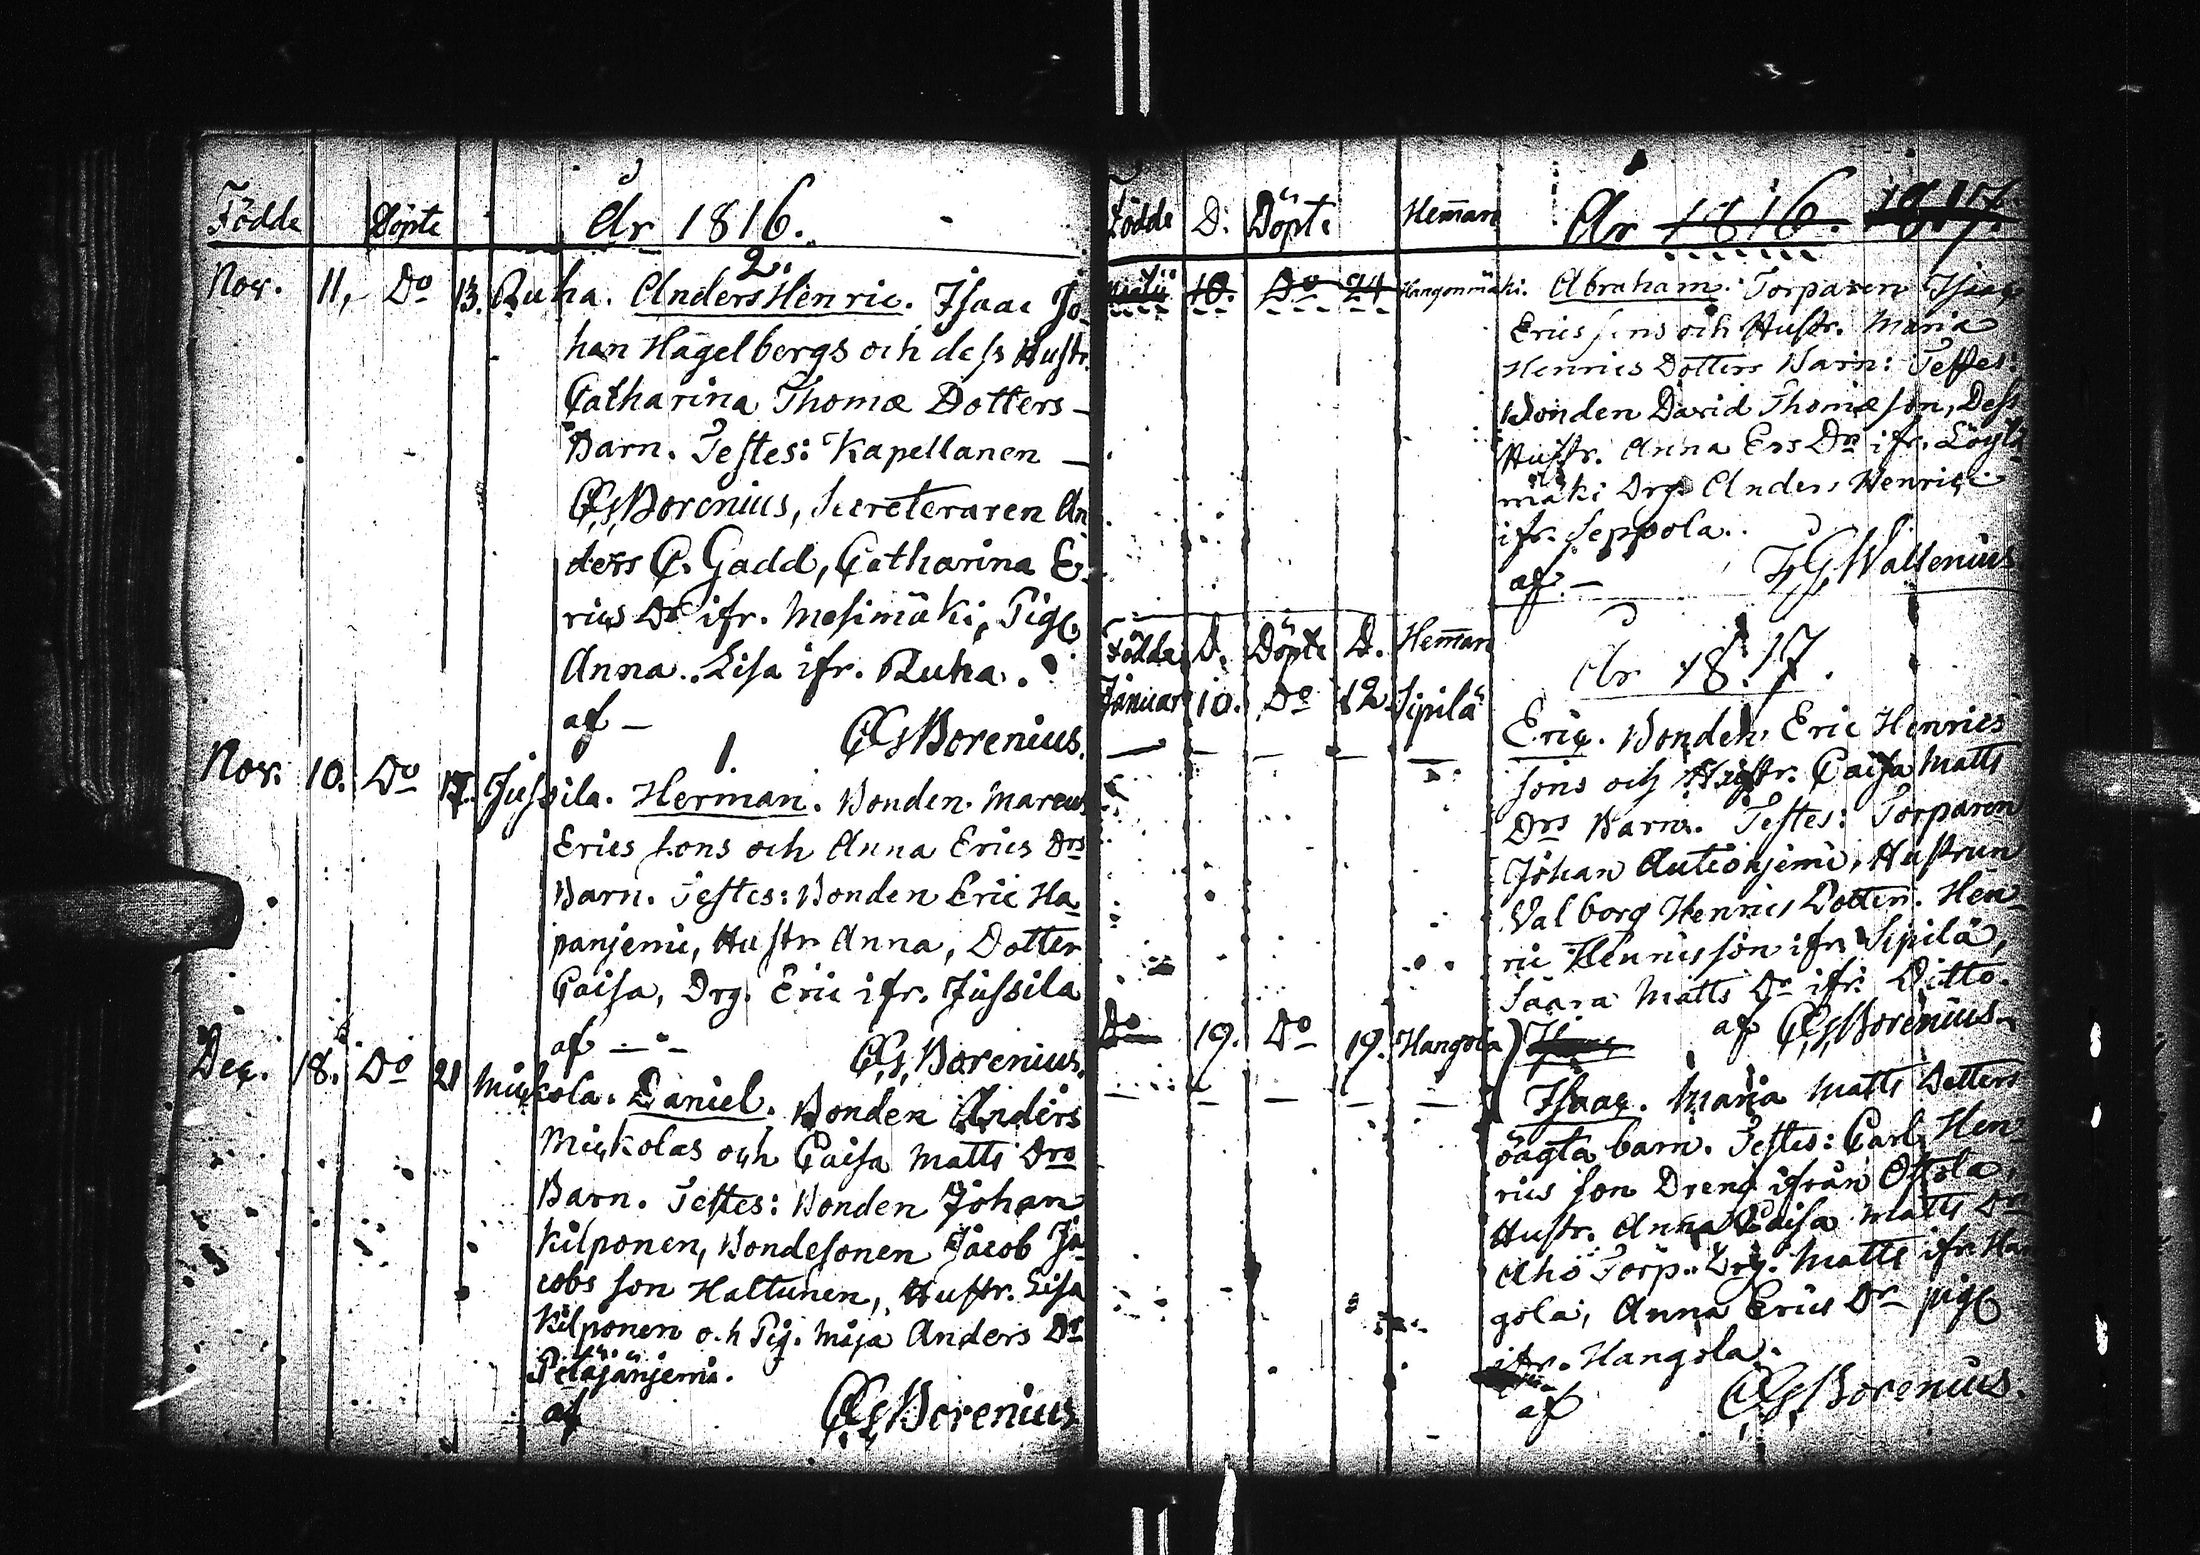 Födde Döpte År 1816.
2.
Nov. 11, Do 13. Ruha. Anders Henric. Isaac Jo-
han Hagelbergs och dess Hustr.
Catharina Thomæ Dotters
Barn. Testes: Kapellanen
CGBorenius, Secreteraren An
ders C. Gadd, Catharina E-
rics Dr ifr. Mesimäki, Pig.
Anna Lisa ifr. Ruha.
af CGBorenius.
1.
Nov. 10. Do 17. Jussila. Herman. Bonden Marcus
Erics sons och Anna Erics Drs
Barn. Testes: Bonden Eric Ha-
panjemi, Hustr Anna, Dotter
Caisa, Drg. Eric ifr. Jussila
af CGBorenius.
Dec. 18. Do 21 Mickola. Daniel. Bonden Anders
Mickolas och Caisa Matts Drs
Barn. Testes: Bonden Johan
Kilponen, Bondesonen Jacob Ja-
cobs son Haltunen, Hustr. Lisa
Kilponen och Pig. Maja Anders Dr
Petäjänjemi.
af CGBorenius
Födde D. Döpte Hemman År 1816. 1817.
10. Do 24 Hangonmäki. Abraham. Torparen Isaac
Erics sons och Hustr. Maria
Henrics Dotters Barn: Testes:
Bonden David Thomæ son, Dess
Hustr. Anna Ers Dr ifr. Löytö
mäki Drg Anders Henric
ifr. Seppola.
af Wallenius
Födde D. Döpte D. Hemman
År 1817.
Januar 10. Do 12. Sipilä
Eric. Bonden Eric Henrics
sons och Hustr. Caisa Matts
Drs Barn. Testes: Torparen
Johan Autionjemi, Hustrun
Valborg Henrics Dotter. Hen-
ric Henricsson ifr. Sipilä,
Saara Matts Dr ifr. Ditto.
af CGBorenius
Do 19. Do 19. Hangola
Isaac. Maria Matts Dotters
oägta barn. Testes: Carl Hen-
rics son Dreng ifrån Ostola,
Hustr. Anna Caisa Matts Dr
Aho Torp. Drg. Matts ifr. Han
gola, Anna Erics Dr pig
ifr. Hangola.
af CGBorenius.